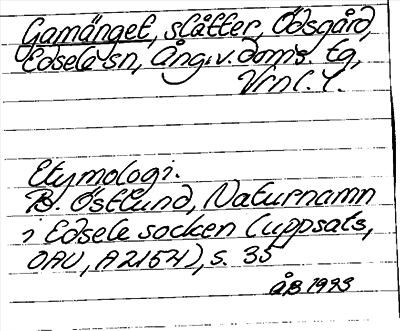 Gamänget, slåtter, Ödsgård,
Edsele sn, Ång. v. doms. tg,
Vrnl. Y.
Etymologi.
B. Östlund, Naturnamn
i Edsele socken (uppsats,
OAU, A2154), s. 35
ÅB 1993